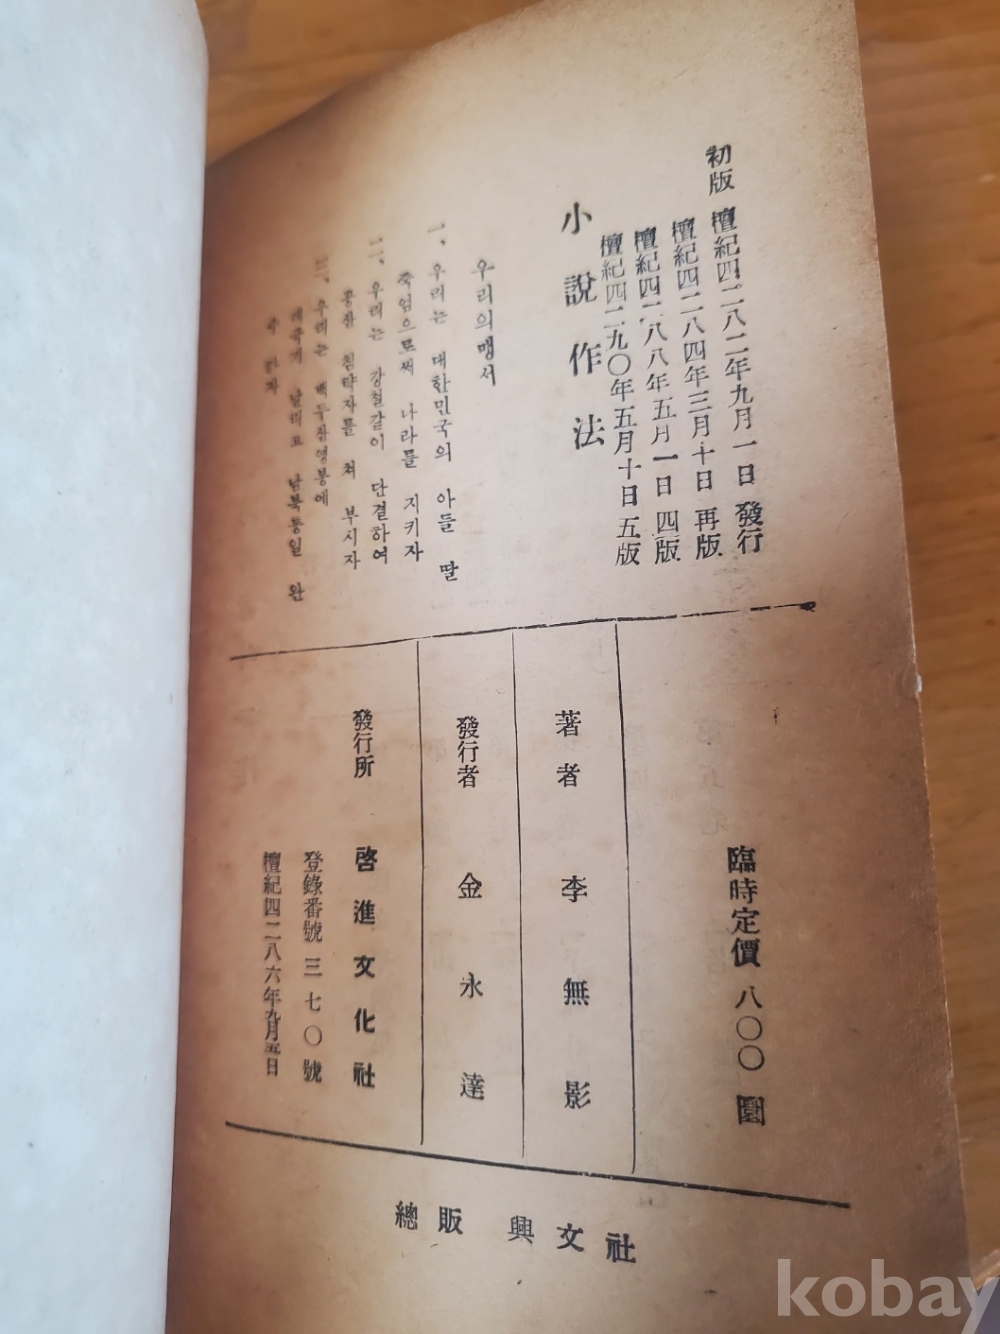 初版 檀紀四二八二年九月一日 發行
檀紀四二八四年三月十日 再版
檀紀四二八八年五月一日 四版
檀紀四二九〇年五月十日 五版
小說作法
우리의 맹서
一、우리는 대한민국의 아들 딸
죽엄으로써 나라를 지키자
二、우리는 강철같이 단결하여
공산 침략자를 쳐 부시자
三、우리는 백두산영봉에
태극기 날리고 남북통일 완
수 하자
臨時定價 八〇〇 圜
著者 李無影
發行者 金永達
發行所 啓進文化社
登錄番號 三七〇號
檀紀四二八六年九月五日
總販 興文社
kobay